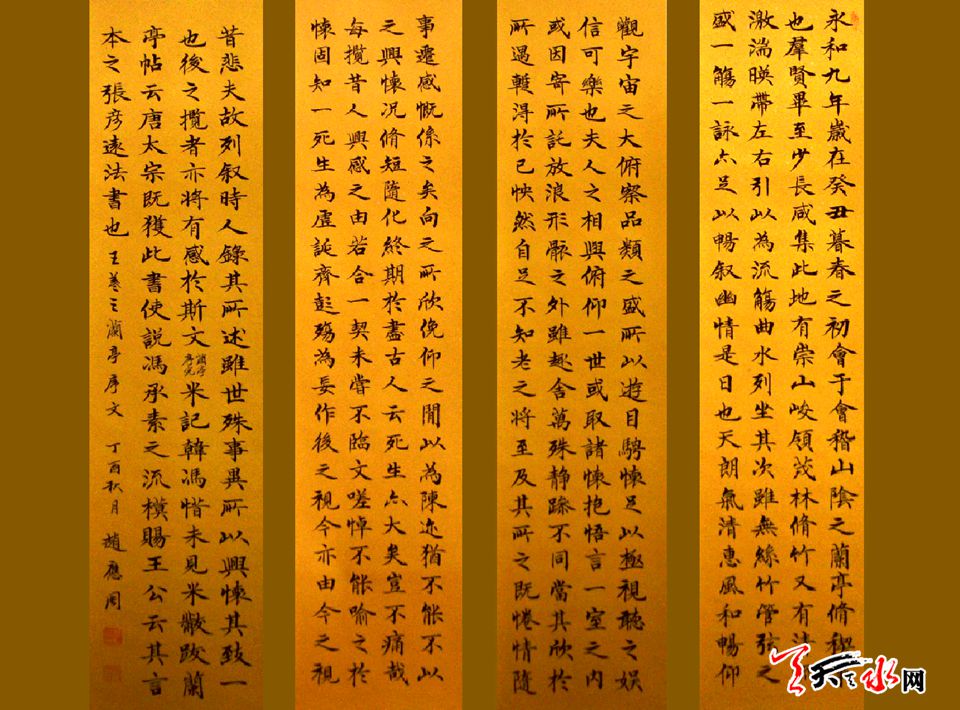 永和九年歲在癸丑暮春之初會于會稽山陰之蘭亭脩禊
也羣賢畢至少長咸集此地有崇山峻領茂林脩竹又有清
激湍暎帶左右引以為流觴曲水列坐其次雖無絲竹管弦之
盛一觴一詠亦足以暢叙幽情是日也天朗氣清惠風和暢仰
觀宇宙之大俯察品類之盛所以遊目騁懷足以極視聽之娛
信可樂也夫人之相與俯仰一世或取諸懷抱悟言一室之內
或因寄所託放浪形骸之外雖趣舍萬殊静躁不同當其欣於
所遇暫得於己怏然自足不知老之將至及其所之既惓情隨
事遷感慨係之矣向之所欣俛仰之閒以為陳迹猶不能不以
之興懷況脩短隨化終期於盡古人云死生亦大矣豈不痛哉
每攬昔人興感之由若合一契未嘗不臨文嗟悼不能喻之於
懷固知一死生為虛誕齊彭殤為妄作後之視今亦由今之視
昔悲夫故列叙時人錄其所述雖世殊事異所以興懷其致一
也後之攬者亦將有感於斯文 蘭亭序完 米記韓馮惜未見米黻跋蘭
亭帖云唐太宗既獲此書使說馮承素之流橅賜王公云其言
本之張彥遠法書也 王羲之蘭亭序文 丁酉秋月 趙應周
天水网